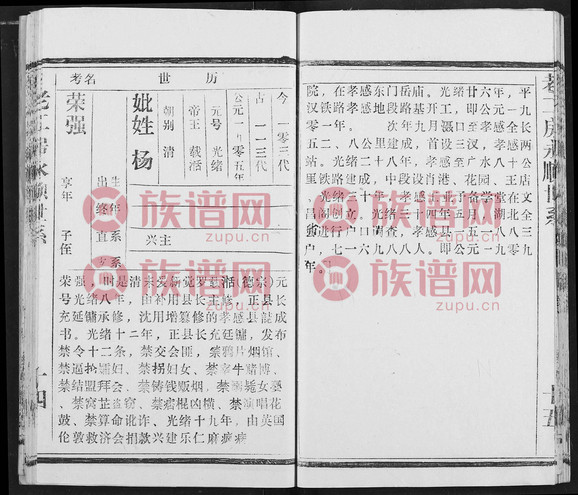 历世 名考
今 一〇三代
古 一一三代
公元一九〇五年
元号 光绪
帝王 载湉
朝别 清
妣姓 杨
荣强
生年
出系
终
直系
享年
子侄
兴主
荣强，时是清末爱新觉罗载湉(德宗)元
号光绪八年，由补用县长主修，正县长
充廷镛承修，沈用增纂修的孝感县誌成
书。光绪十二年，正县长充廷镛，发布
禁令十二条，禁交会匪，禁鸦片烟馆、
禁逼抢孀妇、禁拐妇女、禁宰牛赌博，
禁结盟拜会、禁铸钱贩烟，
禁窝芷盗窃、禁痞棍凶横、禁演唱花
鼓、禁算命讹诈、光绪十九年。由英国
伦敦救济会捐款兴建乐仁麻疯
十四
院，在孝感东门岳庙。光绪廿六年，平
汉铁路孝感地段路基开工，即公元一九
〇一年。 次年九月滠口至孝感全长
五二、八公里建成，首设三汊，孝感两
站。光绪二十八年，孝感境于广水八十公
里铁路建成，中段设肖港、花园、王店
光绪三十年，孝感业余商学堂在文
昌阁创立，光绪三十四年五月，湖北全
省进行户口调查，孝感县五一八三一
户，七一六九八八人。即公元一九〇九
年。
族谱网
zupu.cn
族谱网
zupu.cn
族谱网
zupu.cn
族谱网
zupu.cn